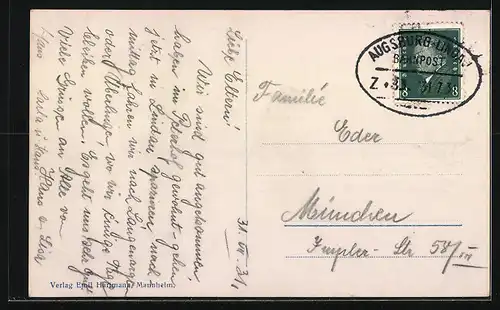 31. VII. 31.
Liebe Eltern!
Wir sind gut angekommen,
haben im Peterhof gewohnt gehen
jetzt in Lindau spazieren, nach
mittag fahren wir nach Langenargen
oder Überlingen wo wir einige Tage
bleiben wollen. Es geht uns sehr gut
Viele Grüsse an Alle von
Hans u Lisa
Familie
Eder
München
Impler-Str 58/III
AUGSBURG-LINDAU
BAHNPOST
Z.
31.7.31
8
8
Verlag Emil Hartmann, Mannheim.